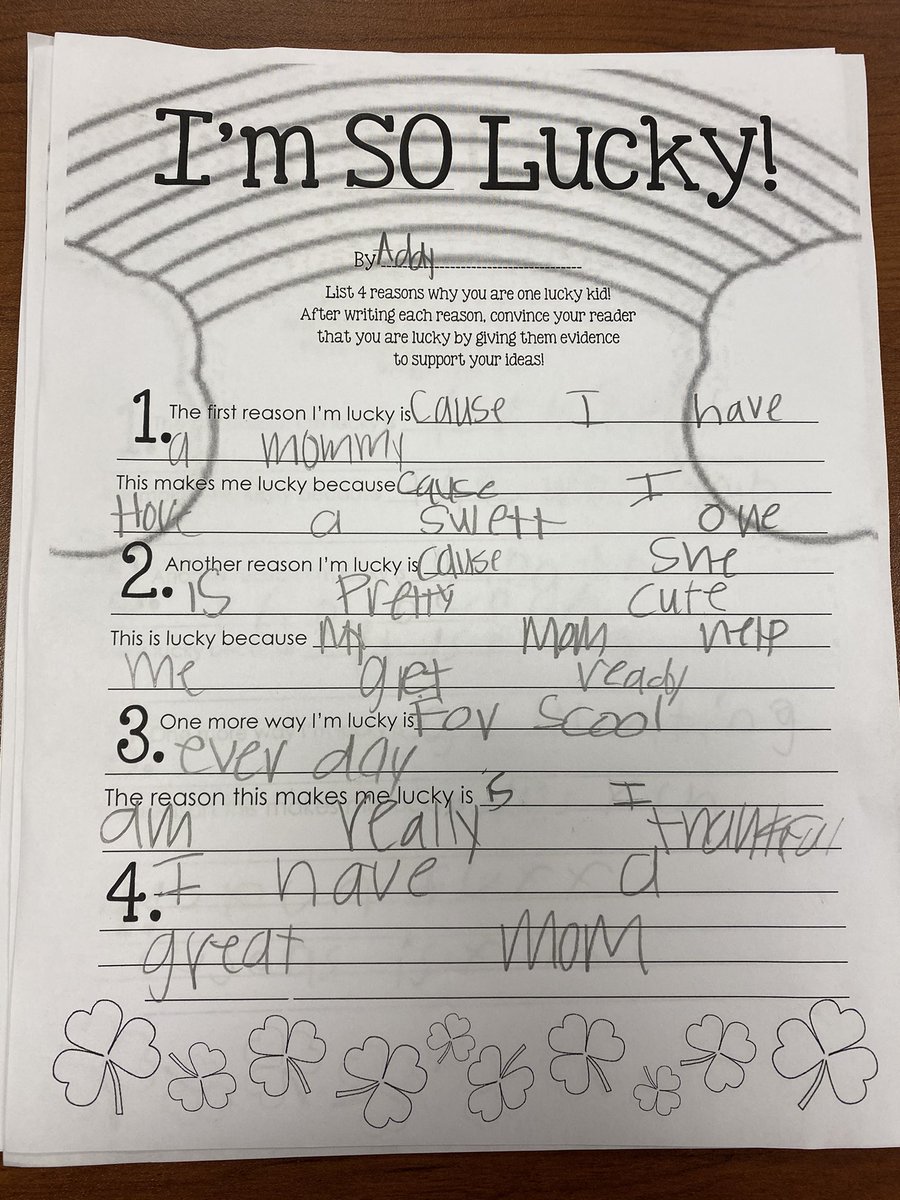 I'm SO Lucky!
By Addy
List 4 reasons why you are one lucky kid!
After writing each reason, convince your reader
that you are lucky by giving them evidence
to support your ideas!
1. The first reason I'm lucky is Cause I have
a mommy
This makes me lucky because cause I
Have a swett one
2. Another reason I'm lucky is cause She
is Pretty cute
This is lucky because My Mom help
me get ready
3. One more way I'm lucky is For Scool
ever day
The reason this makes me lucky is is I
am really thankful
4. I have a
great Mom